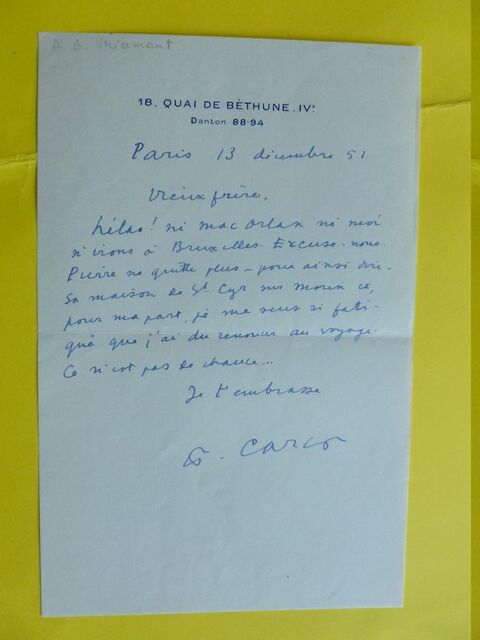 A G. Vriamont
18, QUAI DE BÉTHUNE. IVᵉ
Danton 88-94
Paris 13 décembre 51
Vieux frère,
hélas! ni Mac Orlan ni moi
n'irons à Bruxelles. Excuse-nous.
Pierre ne quitte plus – pour ainsi dire –
sa maison de St Cyr sur Morin et,
pour ma part, je me sens si fati-
gué que j'ai du renoncer au voyage.
Ce n'est pas de chance...
Je t'embrasse
F. Carco